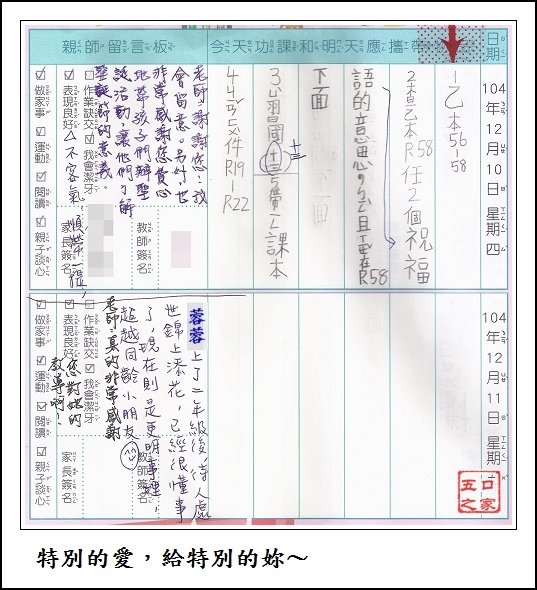 日期
104年12月10日 星期四
今天功課和明天應攜帶
1.乙本56-58
2.查乙本R58任2個祝福
語的意思,公且
在R58
下面
3.小習
課本
4.4
R19-R22
親師留言板
老師,謝謝您!我
會留意。另外,也
非常感謝您費心
地帶孩子們辦聖
誕活動,讓他們了解
聖誕節的意義。
△不客氣
☑做家事 ☑運動 ☑閱讀 ☑親子談心
☑表現良好
☐作業缺交 ☑我會潔牙
家長簽名
教師簽名
104年12月11日 星期五
蓉蓉上了二年級後,待人處
世錦上添花,已經很懂事
了,現在則是更明事理,
超越同齡小朋友
老師,真的非常感謝
您對她的
教導啊!
☑做家事 ☑運動 ☑閱讀 ☑親子談心
☑表現良好
☐作業缺交 ☑我會潔牙
家長簽名
教師簽名
五口之家
特別的愛,給特別的妳~